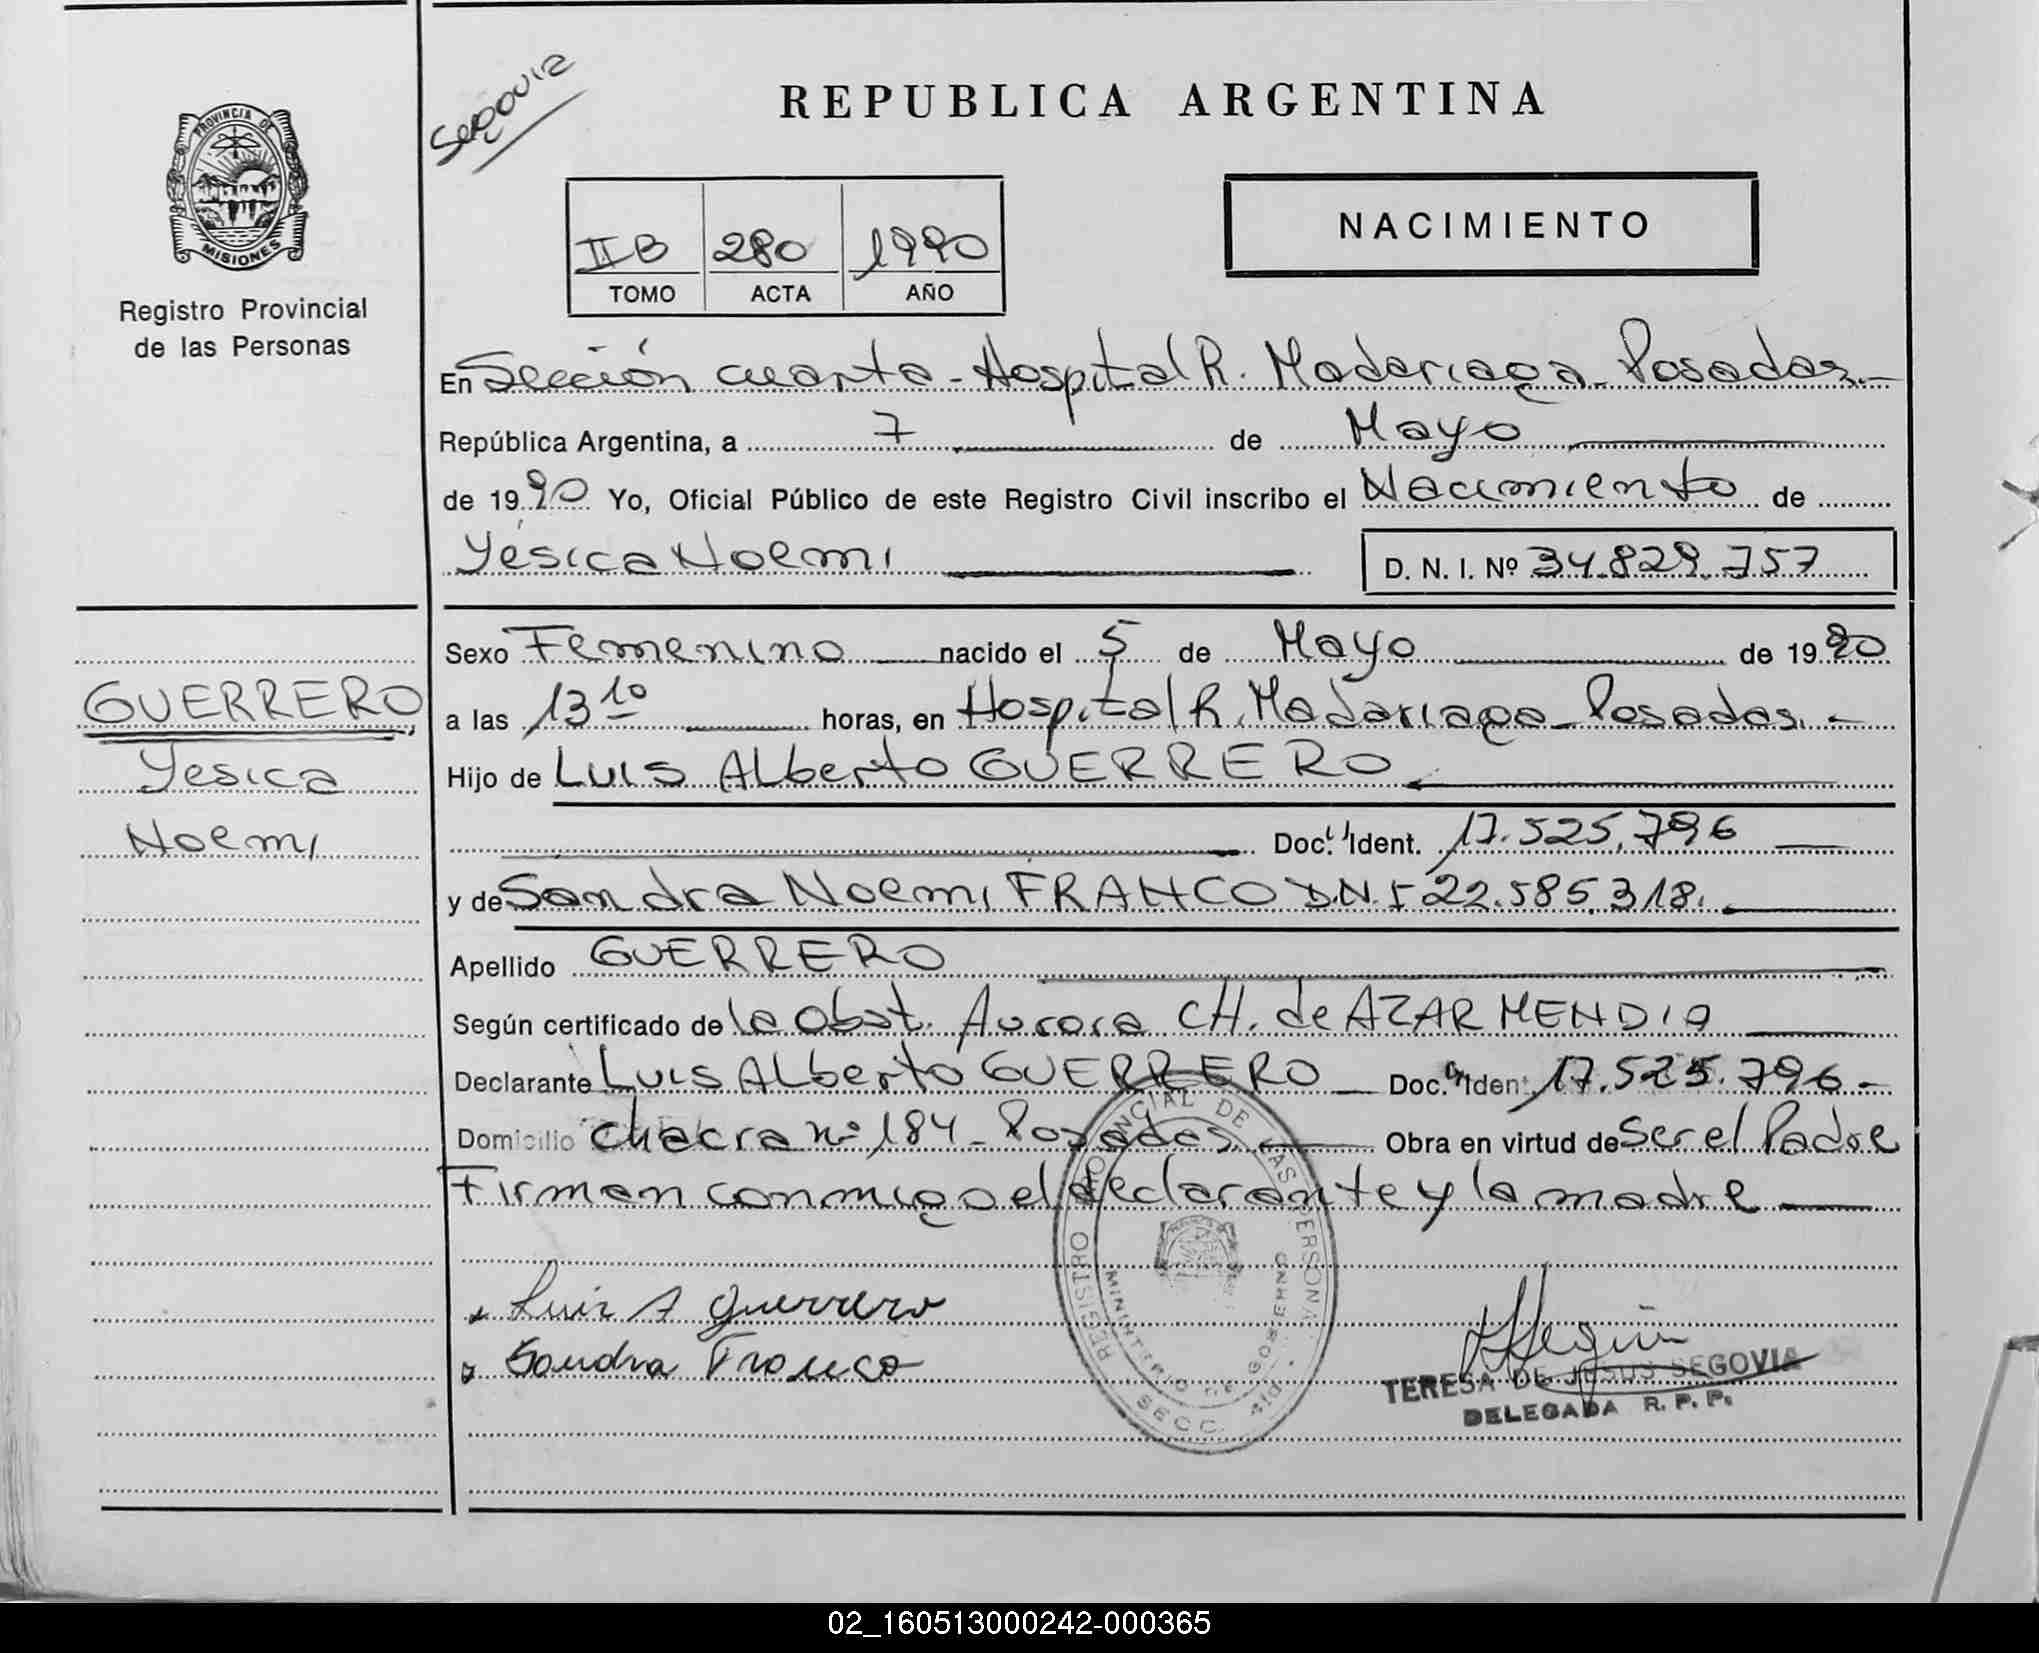 Segovia
REPUBLICA ARGENTINA
PROVINCIA DE
MISIONES
Registro Provincial
de las Personas
IIB 280 1990
TOMO ACTA AÑO
NACIMIENTO
En Sección cuarta - Hospital R. Madariaga - Posadas.-
República Argentina, a 7 de Mayo
de 1990 Yo, Oficial Público de este Registro Civil inscribo el Nacimiento de
Yésica Noemi
D. N. I. Nº 34.829.757
Sexo Femenino nacido el 5 de Mayo de 1990
a las 13 10 horas, en Hospital R. Madariaga - Posadas. -
Hijo de Luis Alberto GUERRERO
Doc. Ident. 17.525.796
y de Sandra Noemi FRANCO D.N.I 22.585.318.
Apellido GUERRERO
Según certificado de la Obst. Aurora CH. de AZARMENDIA
Declarante Luis Alberto GUERRERO Doc. Iden. 17.525.796.-
Domicilio Chacra nº 184 - Posadas Obra en virtud de Ser el Padre
Firman conmigo el declarante y la madre
Luis A Guerrero
Sandra Franco
GUERRERO,
Yesica
Noemi
REGISTRO PROVINCIAL DE LAS PERSONAS
MINISTERIO DE GOBIERNO
SECC. 4ta
TERESA DE JESUS SEGOVIA
DELEGADA R. P. P.
02_160513000242-000365